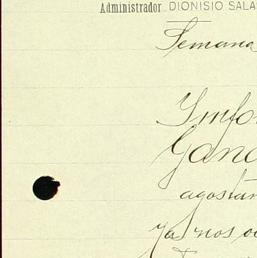 Administrador DIONISIO SALA
Semana
Ganc
agostan
ya nos